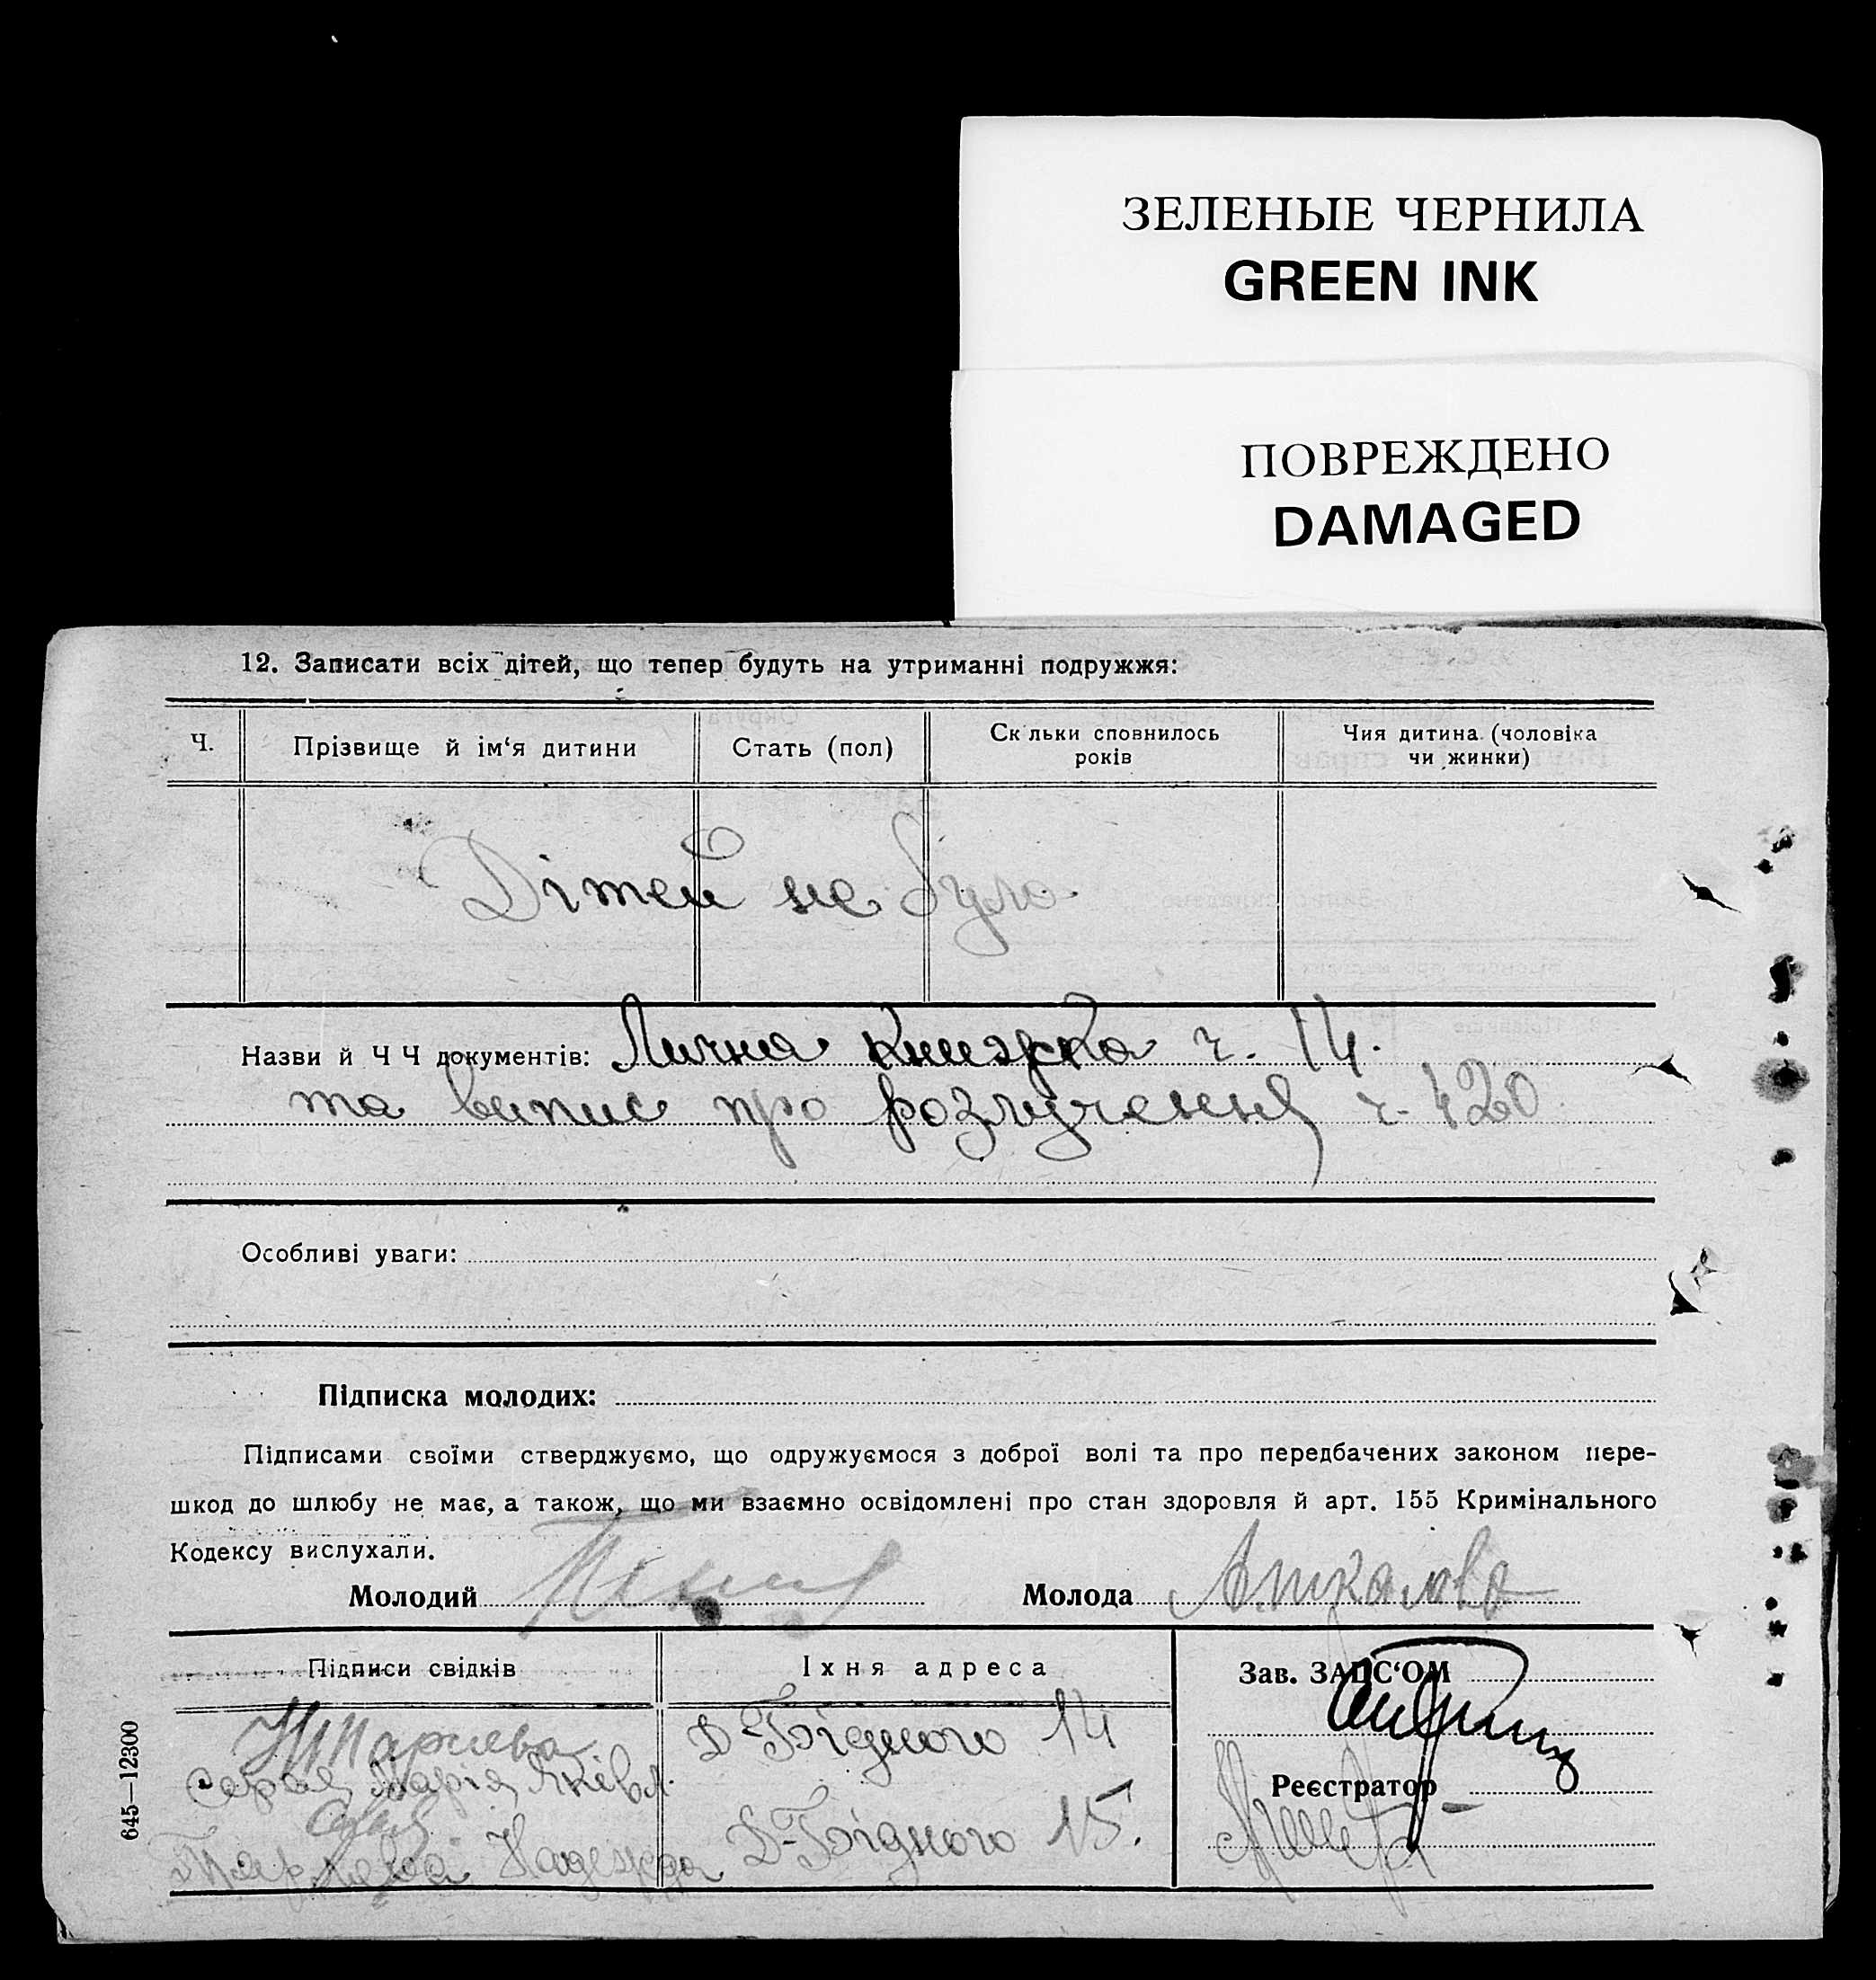 ЗЕЛЕНЫЕ ЧЕРНИЛА
GREEN INK
ПОВРЕЖДЕНО
DAMAGED
12. Записати всіх дітей, що тепер будуть на утриманні подружжя:
Ч.
Прізвище й ім‘я дитини
Стать (пол)
Ск льки сповнилось
років
Чия дитина (чоловіка
чи жинки)
Дітей не було
Назви й Ч Ч документів: Лична книжка ч. 14.
та випис про розлучення ч. 420.
Особливі уваги:
Підписка молодих:
Підписами своїми стверджуємо, що одружуємося з доброї волі та про передбачених законом пере-
шкод до шлюбу не має, а також, що ми взаємно освідомлені про стан здоровля й арт. 155 Кримінального
Кодексу вислухали.
Молодий
Молода
Підписи свідків
Їхня адреса
Зав. ЗАГС‘ОМ
Д-Бідного 14
Марія Яківл.
Реєстратор
Надежда Д-Бідного 15.
645—12300